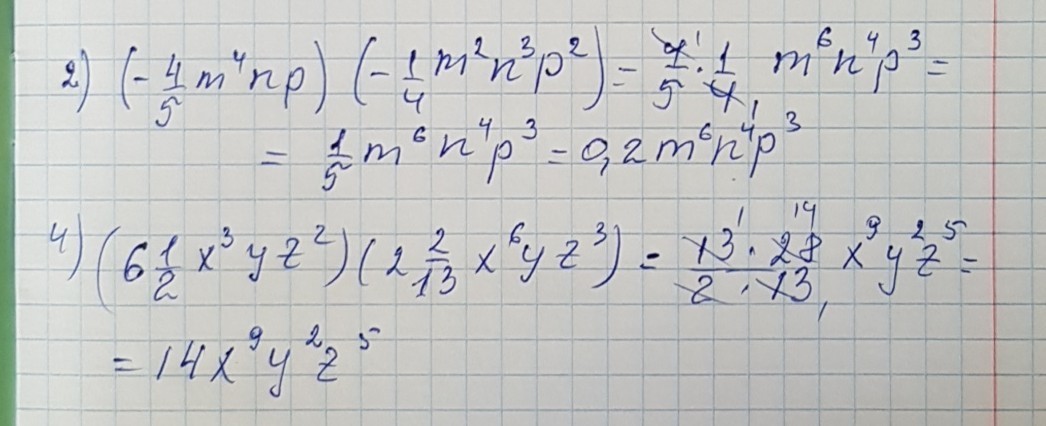 2) (-4/5 m⁴np) (-1/4 m²n³p²) = 4¹/5 · 1/4₁ m⁶n⁴p³ =
= 1/5 m⁶n⁴p³ = 0,2m⁶n⁴p³
4) (6 1/2 x³yz²) (2 2/13 x⁶yz³) = 13¹ · 28¹⁴ / 2 · 13₁ x⁹y²z⁵ =
= 14x⁹y²z⁵